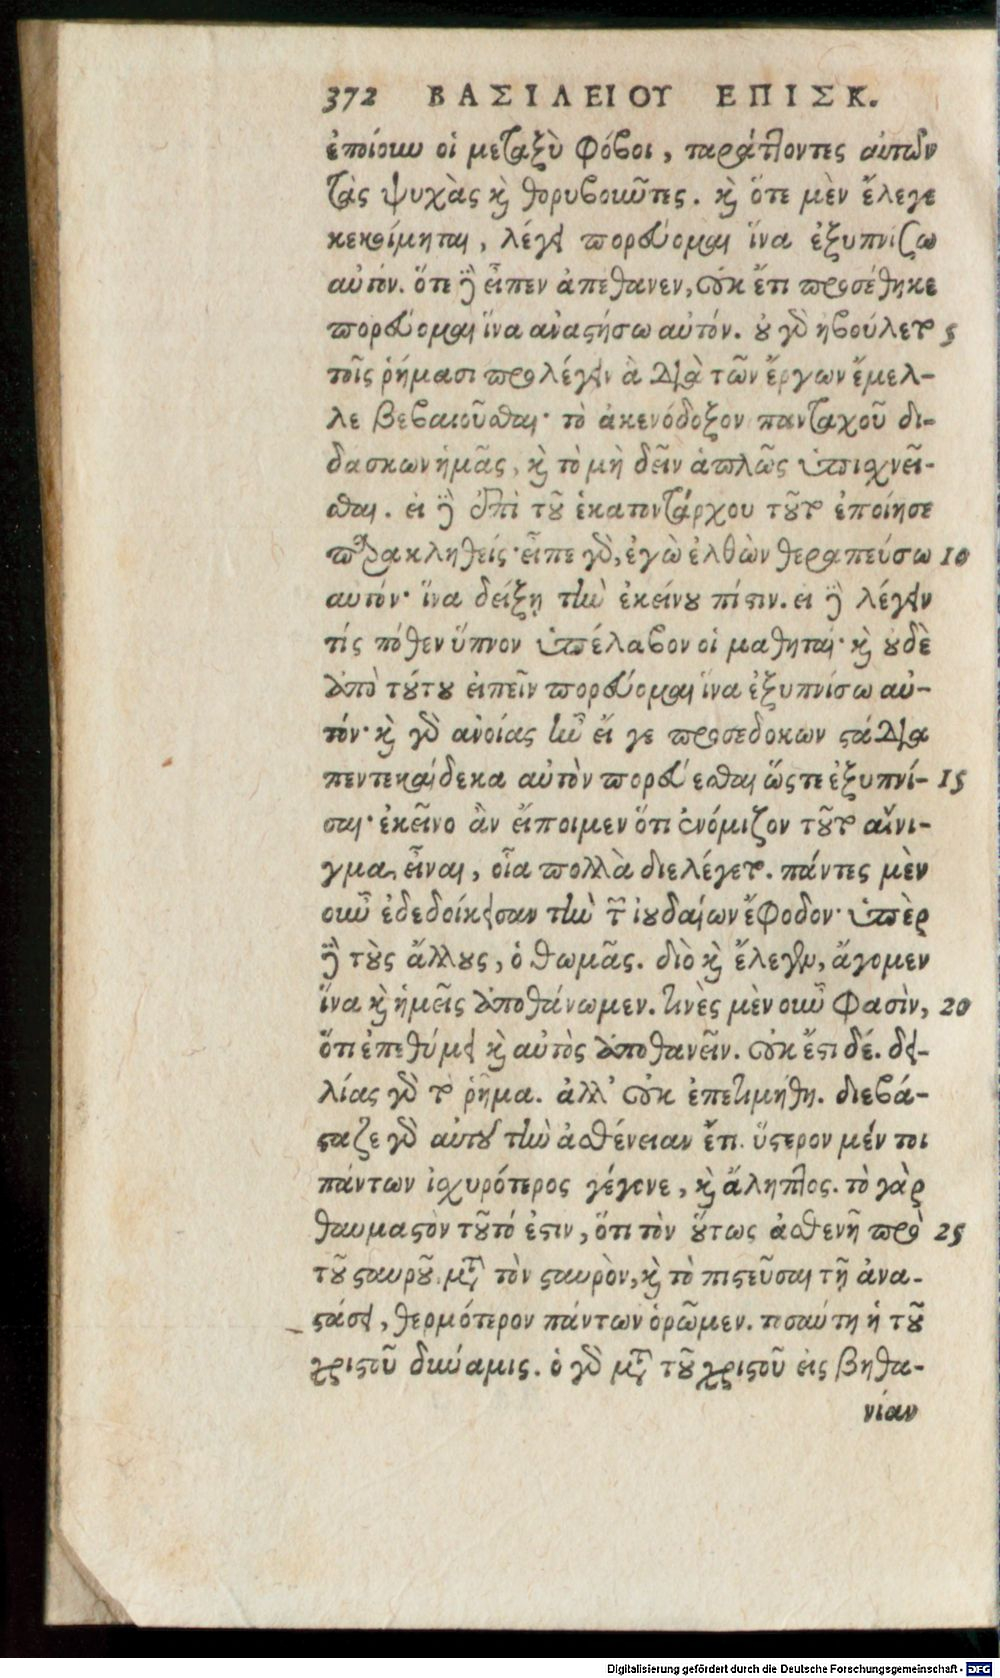 372 ΒΑΣΙΛΕΙΟΥ ΕΠΙΣΚ.
ἐποίουν οἱ μεταξὺ φόβοι, ταράττοντες αὐτῶν
τὰς ψυχὰς καὶ θορυβοῦντες. καὶ ὅτε μὲν ἔλεγε
κεκοίμηται, λέγει πορεύομαι ἵνα ἐξυπνίζω
αὐτόν. ὅτε δὲ εἶπεν ἀπέθανεν, οὐκ ἔτι προσέθηκε
πορεύομαι ἵνα ἀναστήσω αὐτόν. οὐ γὰρ ηβούλετο 5
τοῖς ῥήμασι προλέγειν ἃ διὰ τῶν ἔργων ἔμελ-
λε βεβαιοῦσθαι· τὸ ἀκενόδοξον πανταχοῦ δι-
δασκων ἡμᾶς, καὶ τὸ μὴ δεῖν ἁπλῶς ὑπισχνεῖ-
σθαι. ει δὲ ἐπὶ τοῦ ἑκατοντάρχου τοῦτο ἐποίησε
παρακληθείς· εἶπε γὰρ, ἐγὼ ἐλθὼν θεραπεύσω 10
αυτόν· ἵνα δείξῃ τὴν ἐκείνου πίστιν. ει δὲ λέγειν
τίς πόθεν ὕπνον ὑπέλαβον οἱ μαθηταί· καὶ οὐδὲ
ἀπὸ τούτου ειπεῖν πορεύομαι ἵνα ἐξυπνίσω αὐ-
τόν· καὶ γὰρ ανοίας ἦν εἴ γε προσεδοκων στάδια
πεντεκαίδεκα αὐτὸν πορεύεσθαι ὥστε ἐξυπνί- 15
σαι· ἐκεῖνο ἂν εἴποιμεν ὅτι ἐνόμιζον τοῦτο αἴνι-
γμα εἶναι, οἷα πολλὰ διελέγετο. πάντες μὲν
οὖν ἐδεδοίκεισαν τὴν τῶν ιουδαίων ἔφοδον· ὑπὲρ
δὲ τοὺς ἄλλους, ὁ θωμᾶς. διὸ καὶ ἔλεγεν, ἄγομεν
ἵνα καὶ ἡμεῖς ἀποθάνωμεν. τινὲς μὲν οὖν φασὶν, 20
ὅτι ἐπεθύμει καὶ αὐτὸς ἀποθανεῖν. οὐκ ἔστι δέ. δει-
λίας γὰρ τὸ ῥῆμα. ἀλλ' οὐκ ἐπετιμήθη. διεβά-
σταζε γὰρ αυτοῦ τὴν ἀσθένειαν ἔτι. ὕστερον μέν τοι
πάντων ἰσχυρότερος γέγονε, καὶ ἄληπτος. τὸ γὰρ
θαυμαστὸν τοῦτό ἐστιν, ὅτι τὸν οὕτως ἀσθενῆ πρὸ 25
τοῦ σταυροῦ, μετὰ τὸν σταυρὸν, καὶ τὸ πιστεῦσαι τῇ ἀνα-
στάσει, θερμότερον πάντων ὁρῶμεν. τοσαύτη ἡ τοῦ
χριστοῦ δύναμις. ὁ γὰρ μετὰ τοῦ χριστοῦ εἰς βηθα-
νίαν
Digitalisierung gefördert durch die Deutsche Forschungsgemeinschaft - DFG